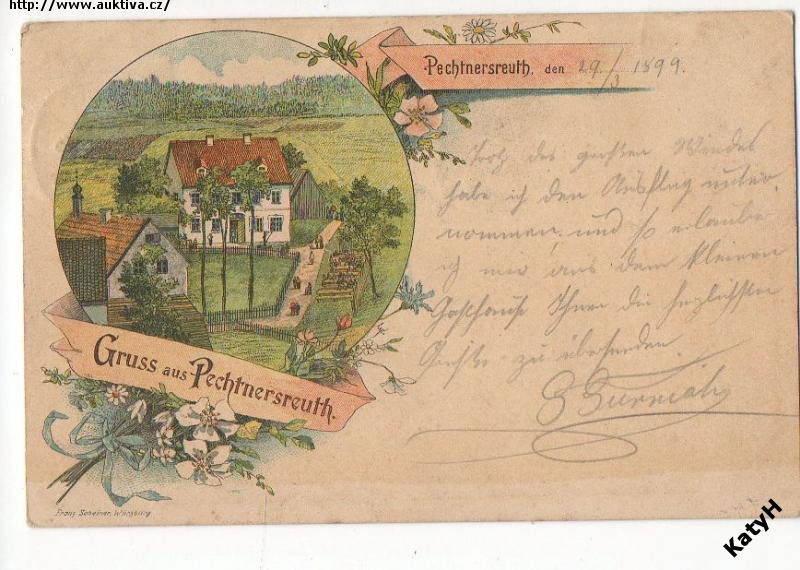 http://www.auktiva.cz/
Pechtnersreuth, den 29./3 1899.
Trotz des großen Windes
habe ich den Ausflug unter-
nommen und so erlaube
ich mir aus dem kleinen
Gasthause Ihnen die herzlichsten
Grüße zu übersenden.
Gruss aus Pechtnersreuth.
Franz Scheiner, Würzburg
KatyH